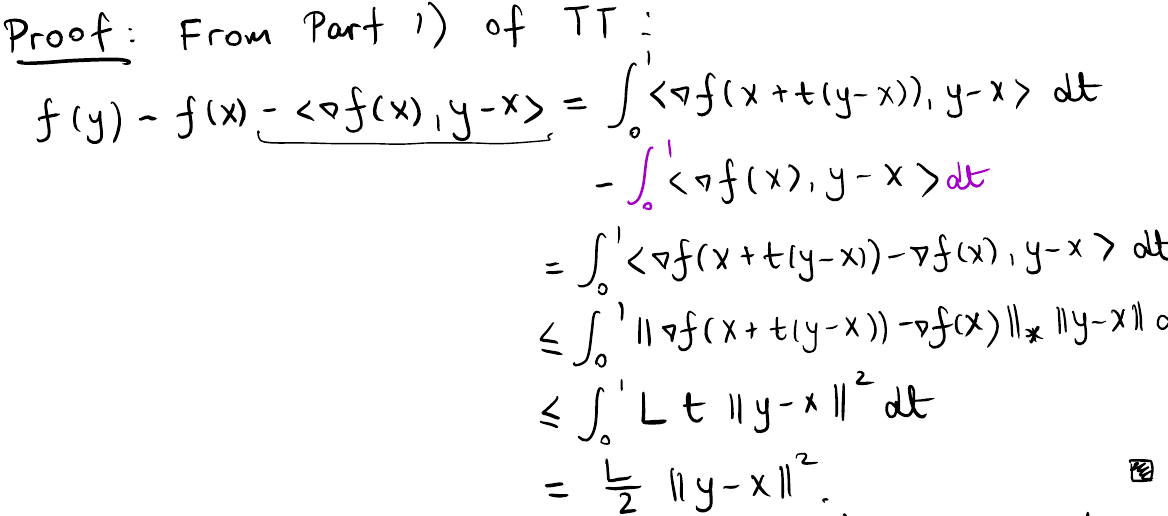 Proof: From Part 1) of TT:
f(y) - f(x) - <∇f(x), y-x> = ∫₀¹ <∇f(x + t(y-x)), y-x> dt
- ∫₀¹ <∇f(x), y-x> dt
= ∫₀¹ <∇f(x + t(y-x)) - ∇f(x), y-x> dt
≤ ∫₀¹ ||∇f(x + t(y-x)) - ∇f(x)||_* ||y-x||
≤ ∫₀¹ L t ||y-x||² dt
= L/2 ||y-x||².